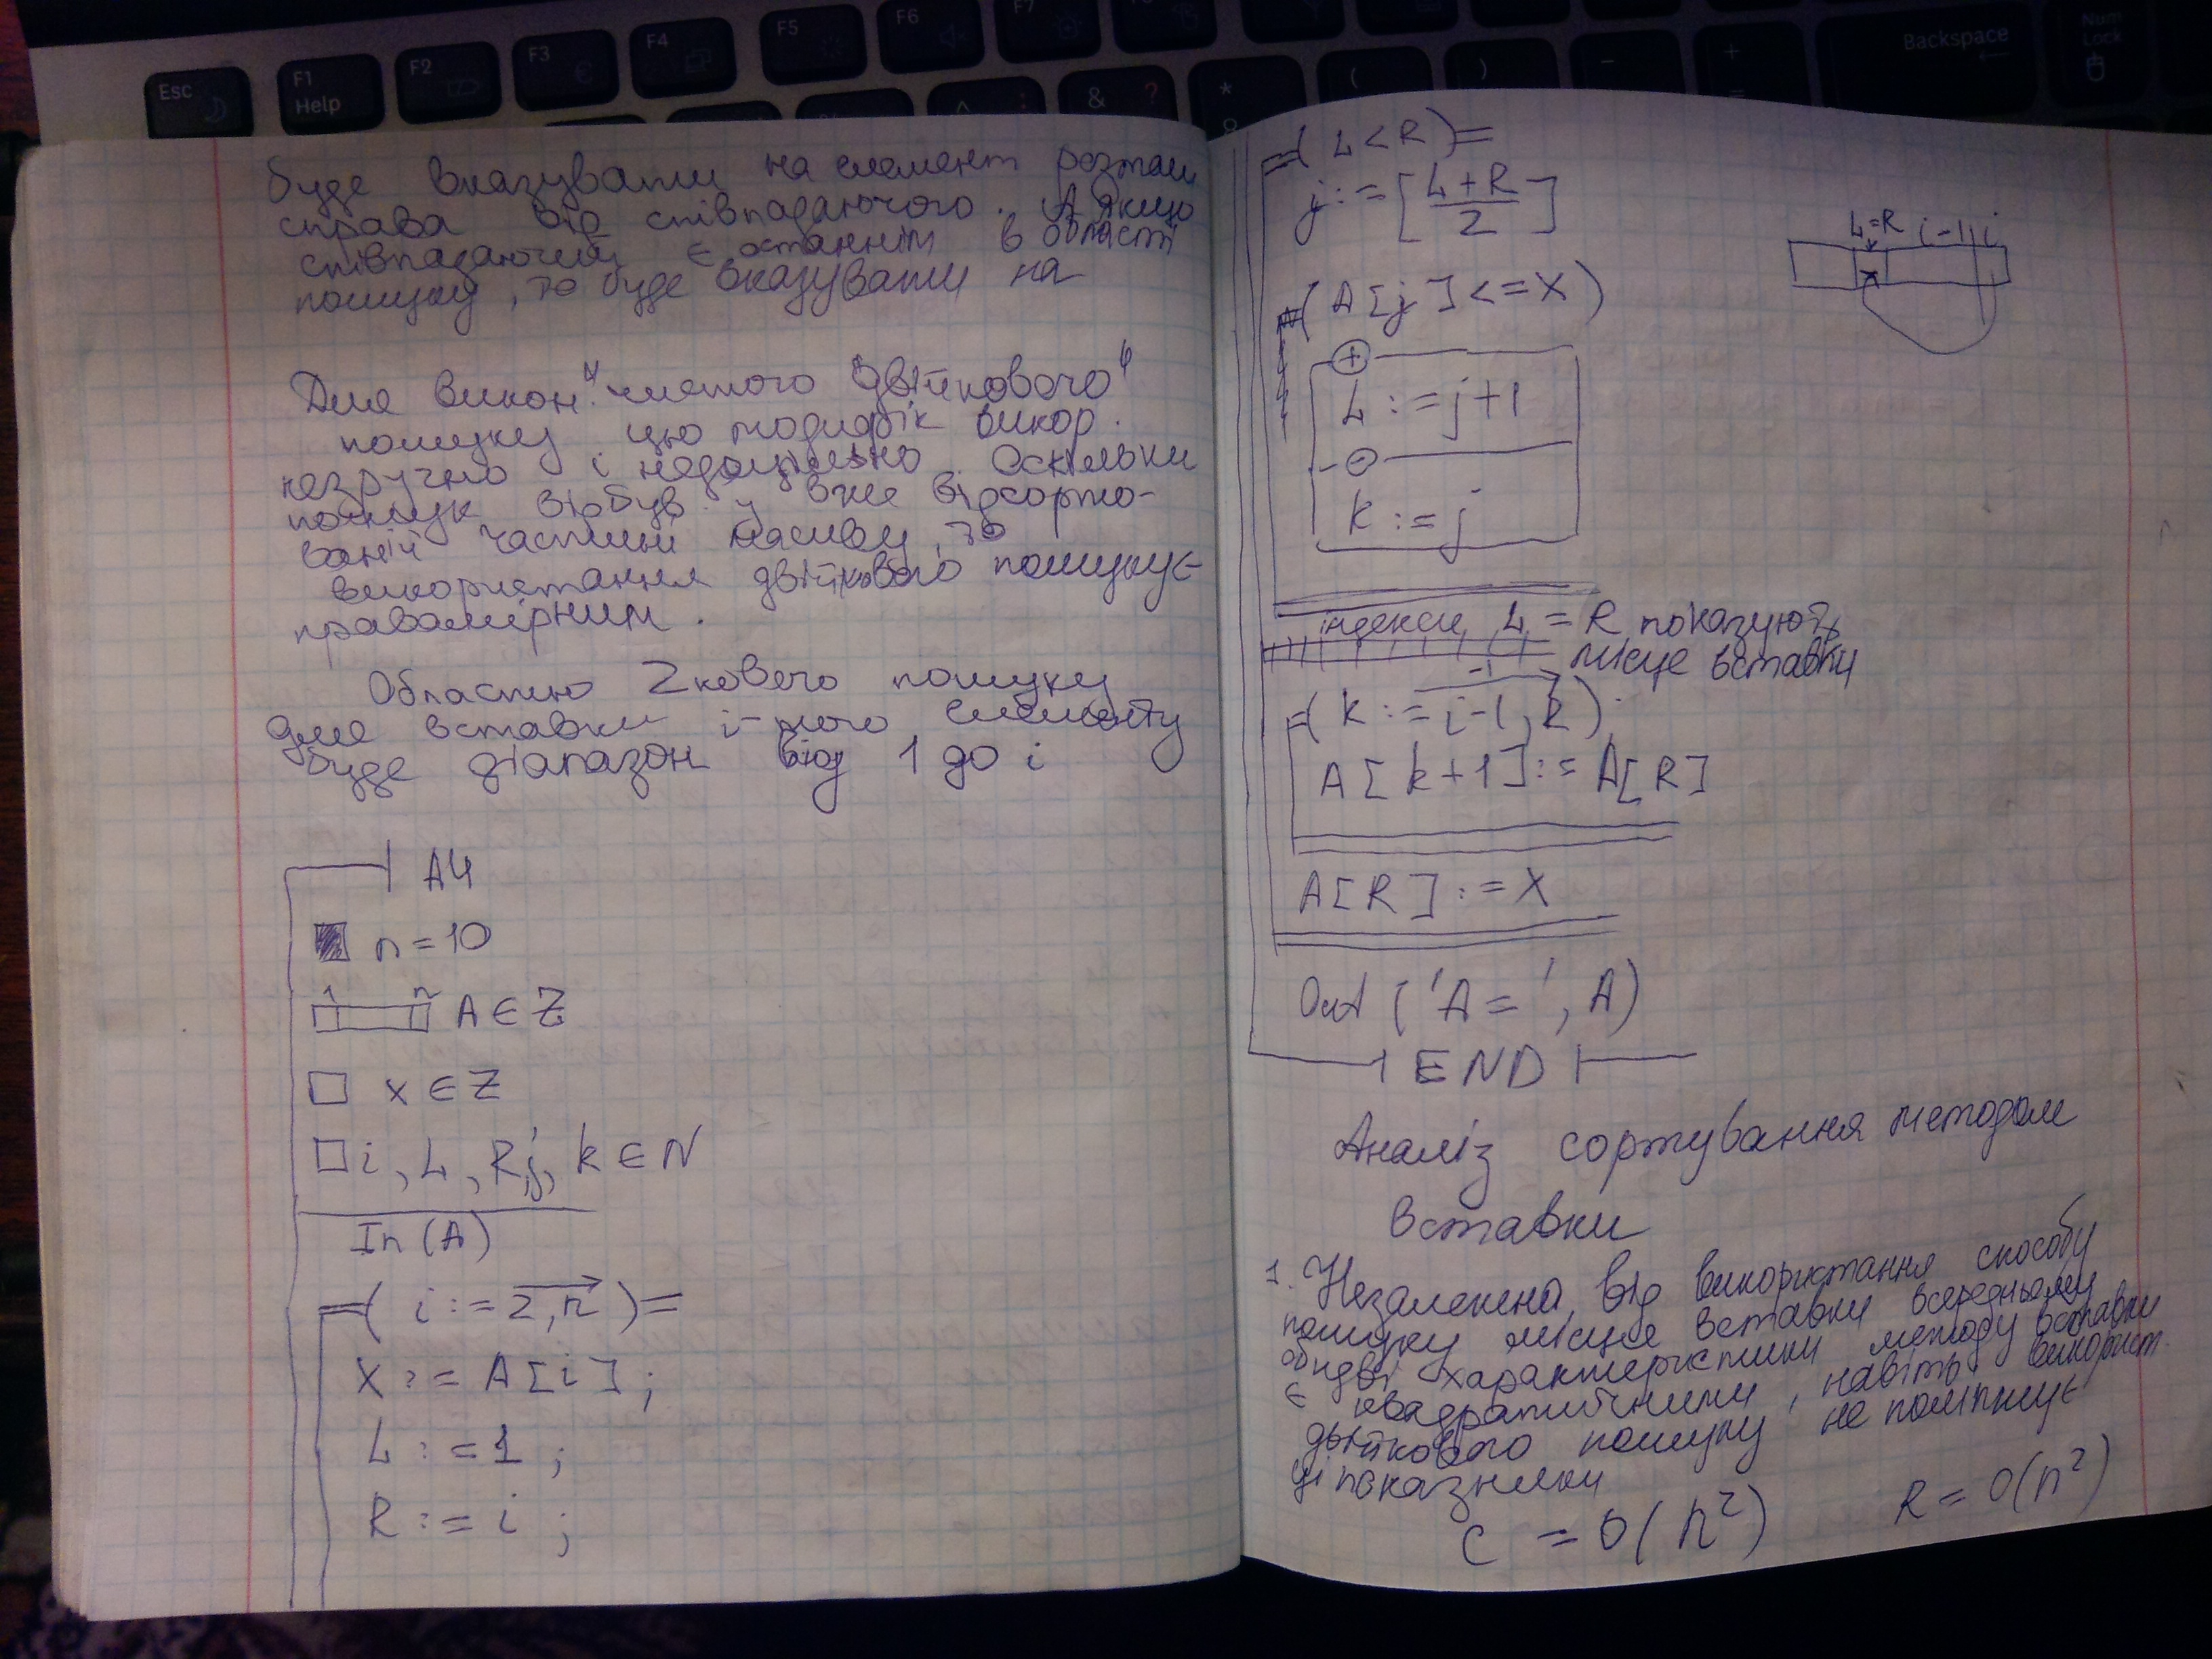 буде вказувати на елемент розташ
справа від співпадаючого. А якщо
співпадаючий є останнім в області
пошуку, то буде вказувати на
Для викон. "чистого двійкового"
пошуку цю модифік викор.
незручно і недоцільно. Оскільки
пошук відбув. у вже відсорто-
ваній частині масиву, то
використання двійкового пошуку є
правомірним.
Областю 2кового пошуку
для вставки i-того елементу
буде діапазон від 1 до i
A4
n = 10
1 n A ∈ Z
x ∈ Z
i, L, R, j, k ∈ N
In (A)
( i := 2, n )
X := A[i];
L := 1;
R := i;
( L < R )
j := [ (L+R)/2 ]
( A[j] <= X )
+
L := j+1
-
k := j
індекси L = R показують
місце вставки
-1
( k := i-1, R )
A[k+1] := A[R]
A[R] := X
Out ('A=', A)
END
L=R i-1 i
x
Аналіз сортування методом
вставки
1. Незалежно від використання способу
пошуку місця вставки всередньому
обидві характеристики методу вставки
є квадратичними, навіть використ.
двійкового пошуку не поліпшує
ці показники
C = O(n²) R = O(n²)
Esc
F1
Help
F2
F3
F4
F5
F6
F7
Backspace
Num
Lock